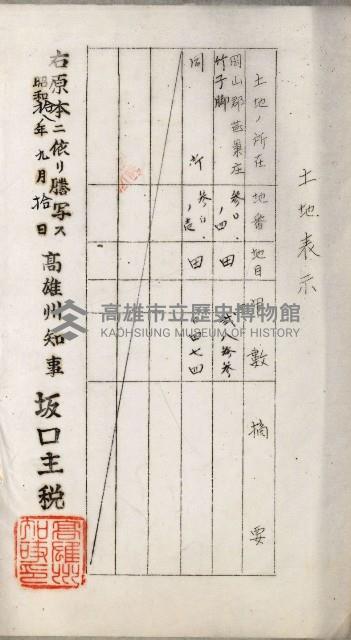 土地表示
土地ノ所在 地番 地目 甲數 摘要
岡山郡燕巢庄
竹子脚 參〇、ノ四 田 貳八參參
同所 參〇、ノ壱 田 四七四
右原本ニ依リ謄写ス
昭和拾八年九月拾日
高雄州知事 坂口主税
高雄州知事印
高雄市立歷史博物館
KAOHSIUNG MUSEUM OF HISTORY